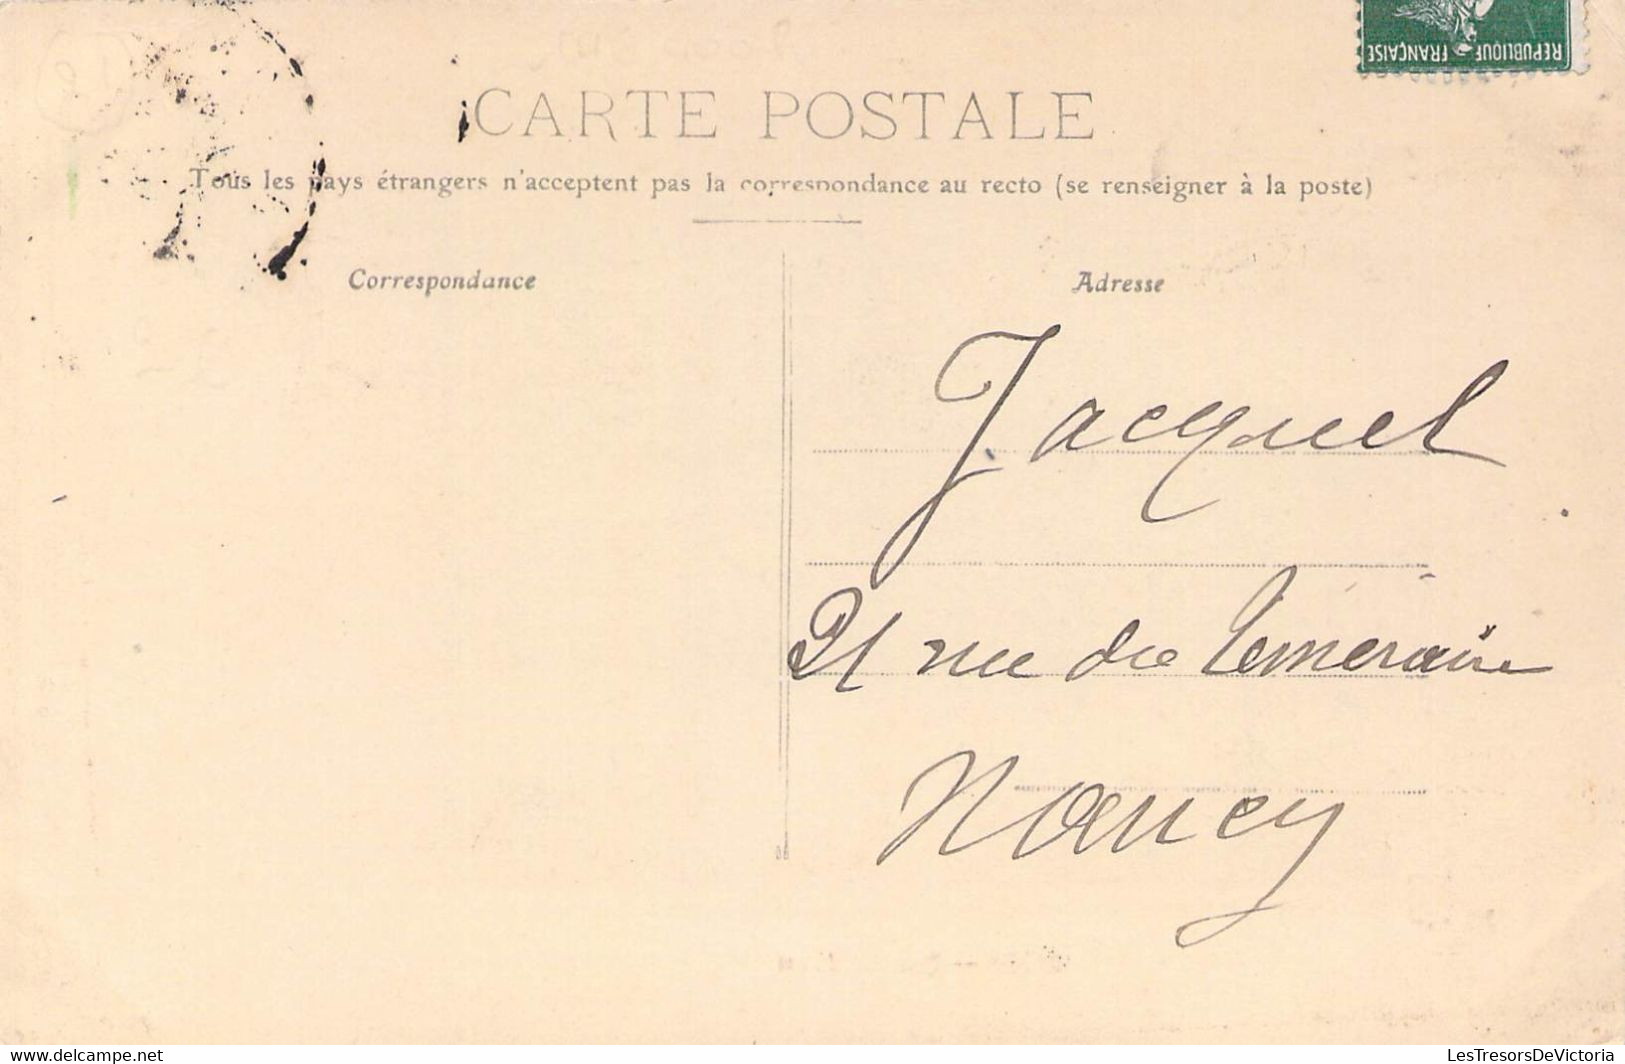 REPUBLIQUE FRANÇAISE
CARTE POSTALE
Tous les pays étrangers n'acceptent pas la correspondance au recto (se renseigner à la poste)
Correspondance
Adresse
Jacquel
21 rue du Temeraire
Nancy
LesTresorsDeVictoria
delcampe.net